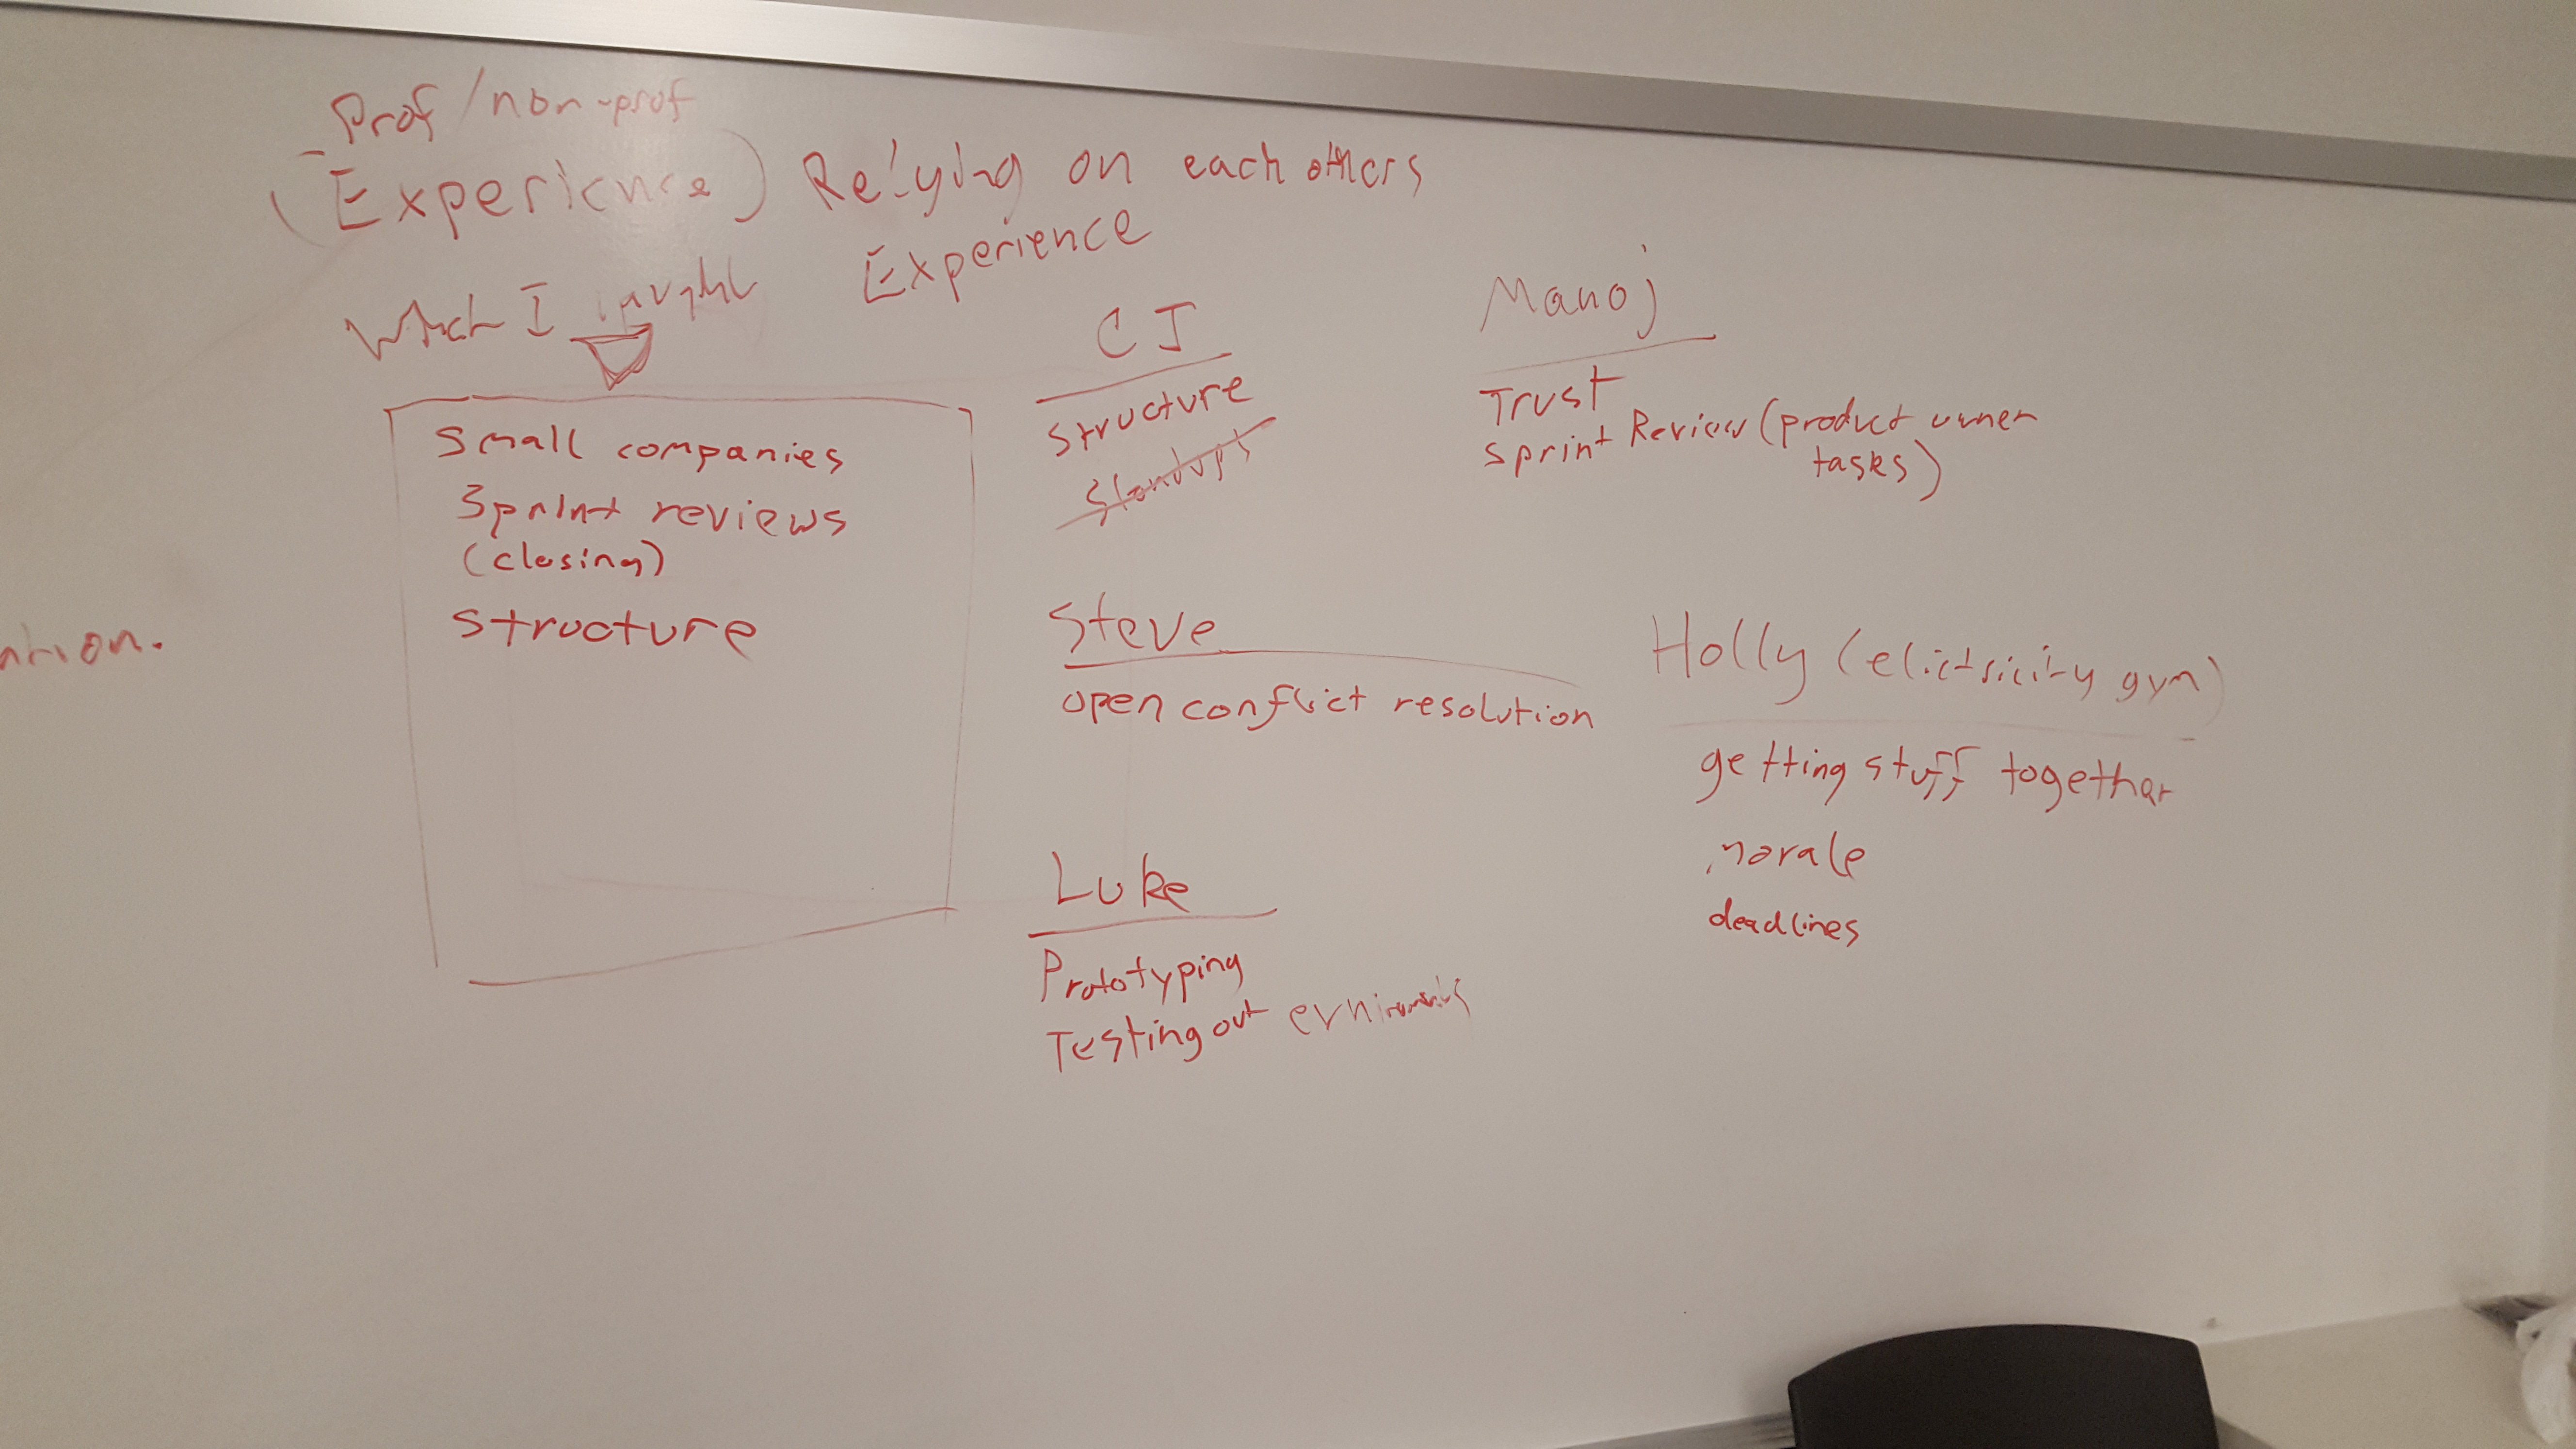 Prof/non-prof
(Experience) Relying on each others
Experience
Which I taught
Small companies
Sprint reviews
(closing)
Structure
CJ
Structure
Standups
Manoj
Trust
Sprint Review (product owner
tasks)
Steve
open conflict resolution
Holly (elictricity gym)
getting stuff together
morale
deadlines
Luke
Prototyping
Testing out